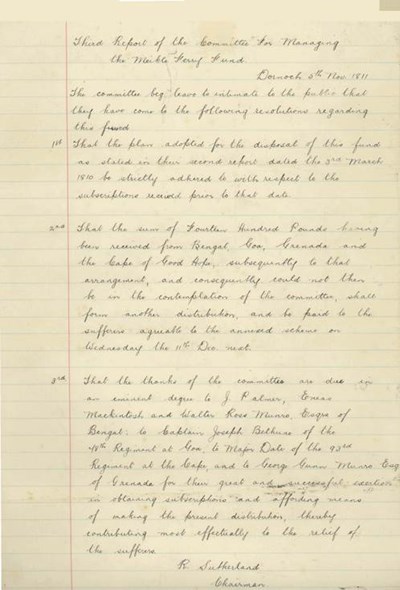 Third Report of the Committee For Managing
the Meikle Ferry Fund.
Dornoch 5th Nov. 1811
The committee beg leave to intimate to the public that
they have come to the following resolutions regarding
this fund
1st That the plan adopted for the disposal of this fund
as stated in their second report dated the 3rd March
1810 be strictly adhered to with respect to the
subscriptions received prior to that date.
2nd That the sum of Fourteen Hundred Pounds having
been received from Bengal, Goa, Grenada and
the Cape of Good Hope, subsequently to that
arrangement, and consequently could not then
be in the contemplation of the committee, shall
form another distribution, and be paid to the
sufferers agreable to the annexed scheme on
Wednesday the 11th Dec. next.
3rd That the thanks of the committee are due in
an eminent degree to J Palmer, Eneas
Mackintosh and Walter Ross Munro, Esqrs of
Bengal; to Captain Joseph Bethune of the
Regiment at Goa, to Major Dale of the 93rd
Regiment at the Cape, and to George Gunn Munro Esq
of Grenada for their great and successful exertions
in obtaining subscriptions and affording means
of making the present distribution, thereby
contributing most effectually to the relief of
the sufferers.
R. Sutherland
Chairman